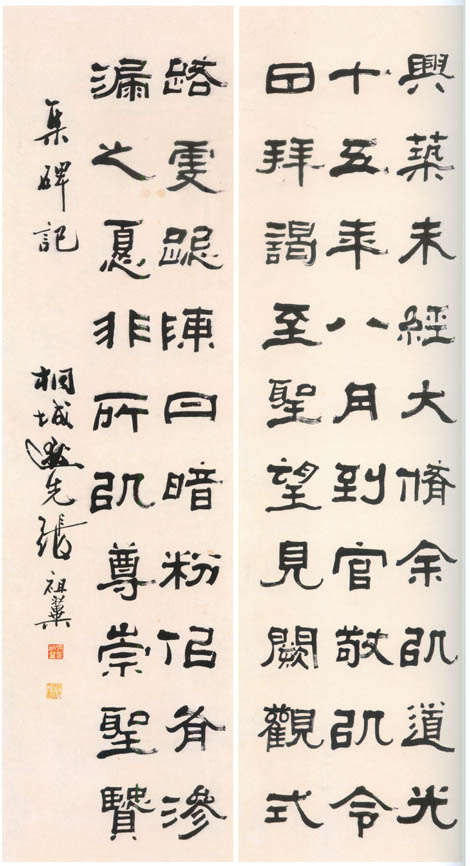 興築未經大脩余㠯道光
十五年八月到官敬㠯令
日拜謁至聖望見闕觀式
路虔跽陳曰暗粉侣有滲
漏之憂非所㠯尊崇聖賢
集碑記 桐城逖先張祖翼